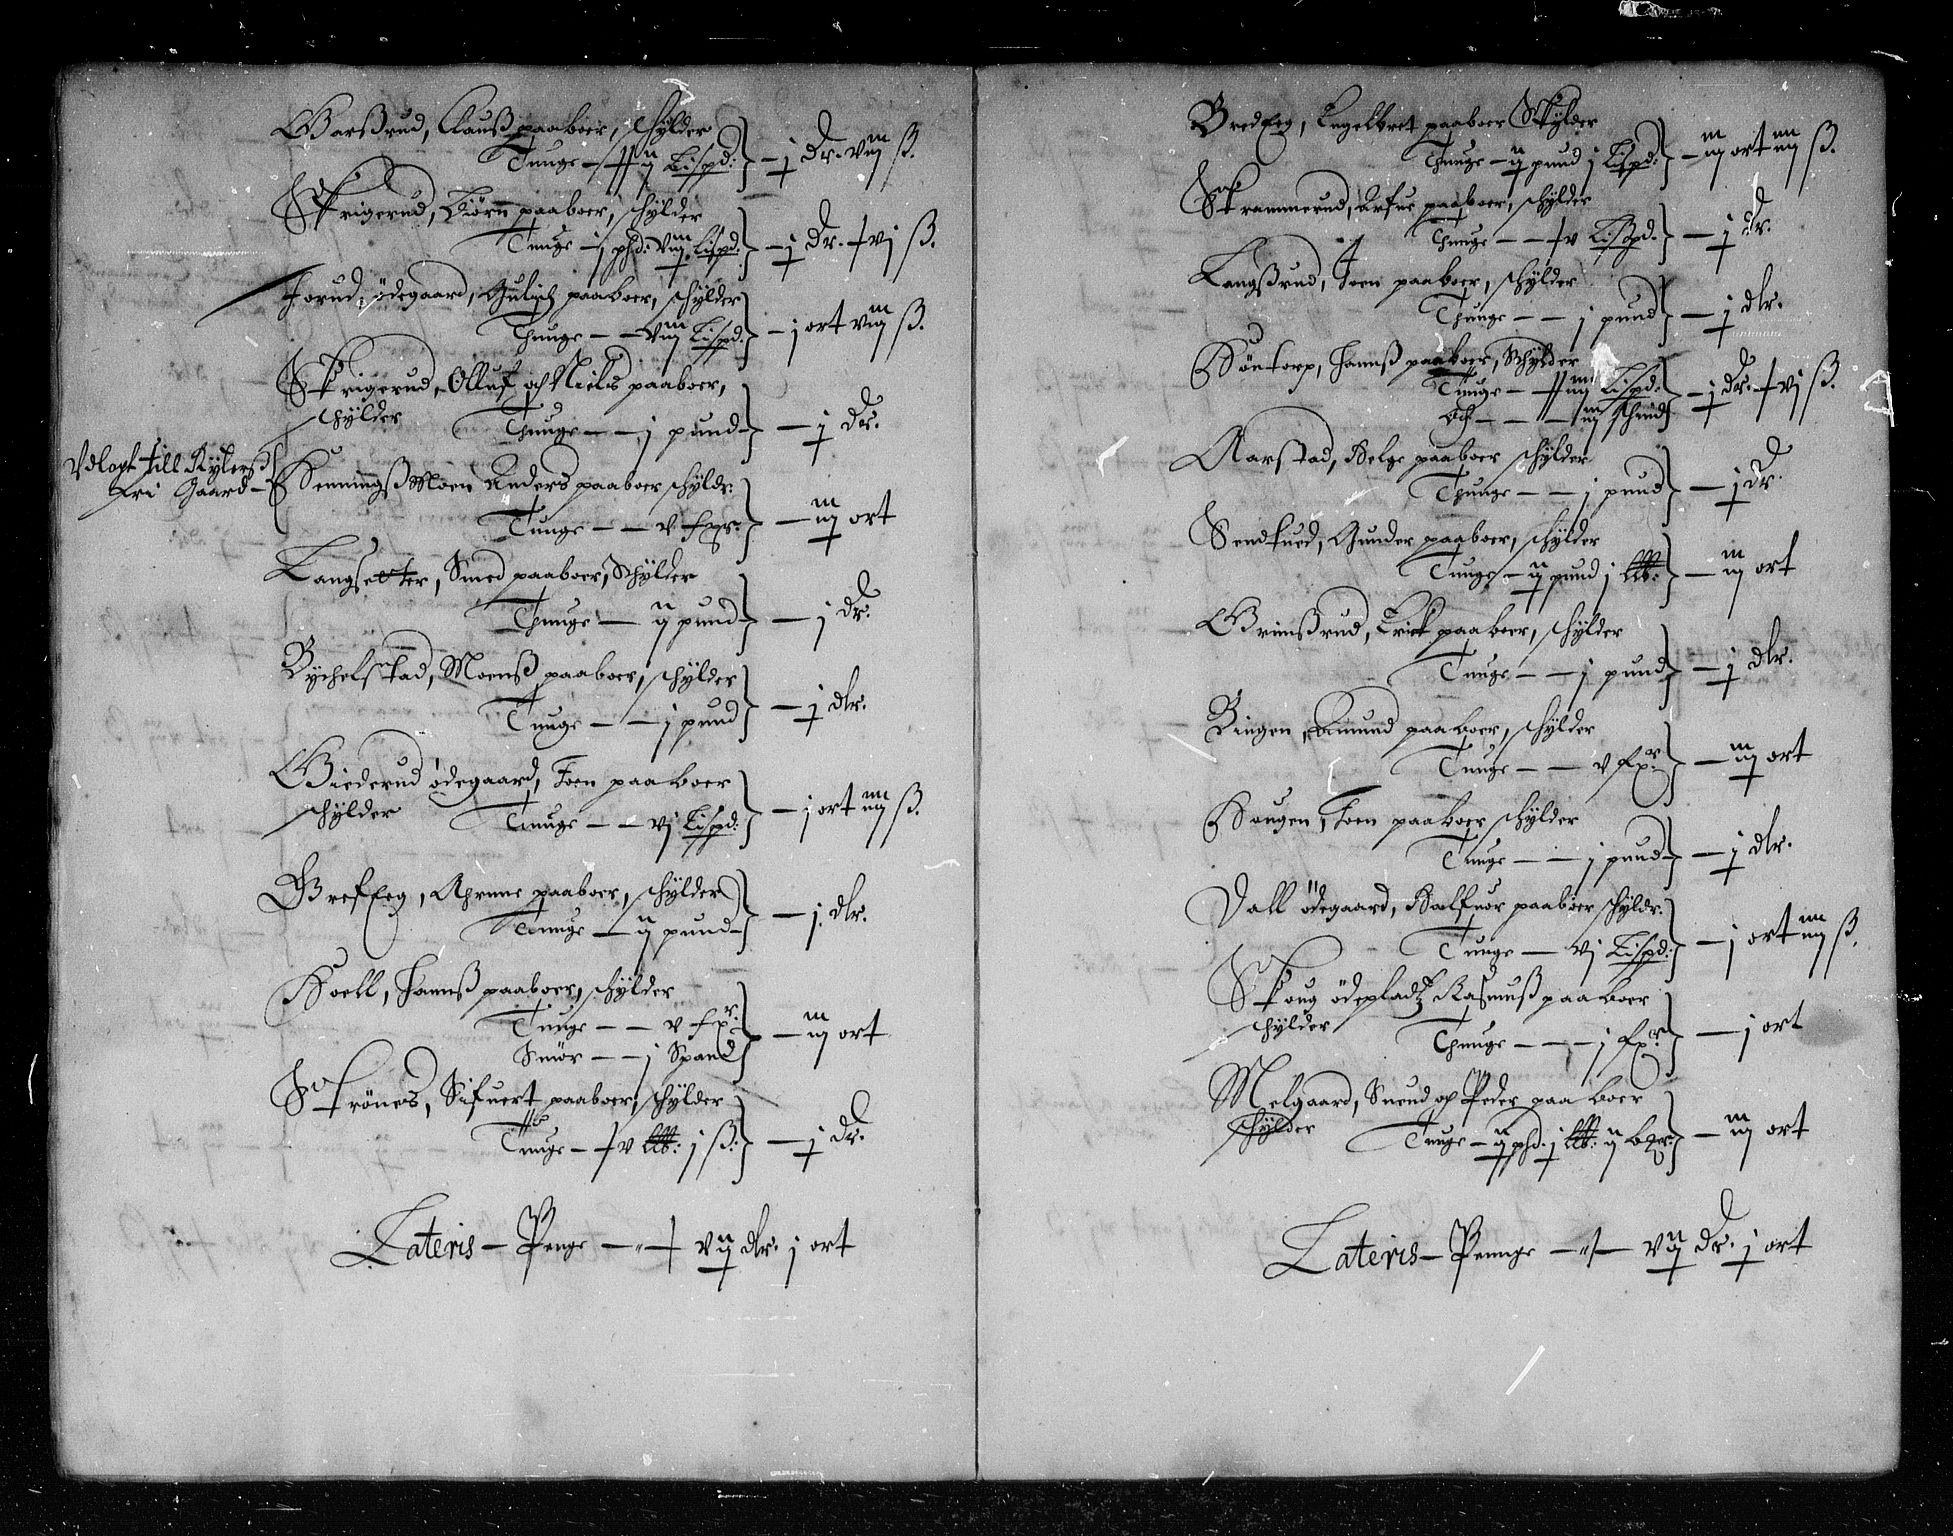 Garßrud, Clauß paaboer, schÿlder
Tunge – Lispd: – j Dr. viij ß.
Skrigerud, Biörn paaboer, schÿlder
Tunge – j phd: viij Lispd. – j Dr. vj ß.
Jorud ödegaard, Gulich paaboer, schÿlder
Thunge – – viij Lispd. – j ort viij ß.
Skrigerud, Olluf och Niels paaboer,
schÿlder Thunge – – j pund – j Dr.
Vdlagt till Rytters
fri Gaard –
Henningß Moen Anders paaboer schÿldr:
Tunge – – v fxr: – iij ort
Langsetter, Smed paaboer, Schÿlder
Thunge – ij pund – j Dr.
Bÿchelstad, Moenß paaboer, schÿlder
Tunge – – j pund – j dlr.
Giederud ödegaard, Joen paaboer
schÿlder Tunge – – vj Lispd: – j ort iiij ß.
Grefseg, Arne paaboer, schÿlder
Tunge – ij pund – j. dlr.
Hoell, Hannß paaboer, schÿlder
Tunge – – v fxr. – iij ort
Smör – – j Spand
Strönes, Sifuert paaboer, schÿlder
Tunge – v j ß: – j Dr.
Lateris – Penge – vij dlr. j ort
Bredseg, Engelbret paaboer Skÿlder
Thunge – ij pund j Lispd. – iij ort iiij ß.
Skrammerud, Arfue paaboer, schÿlder
Thunge – – v Lißpd. – j Dr.
Langßrud, Joen paaboer, schÿlder
Thunge – – j pund – j dlr.
Hontorp, Hannß paaboer, Schÿlder
Tunge – iiij Lispd. – j Dr. vj ß.
Och – – – iij schind
Aarstad, Helge paaboer schÿlder
Thunge – – j pund – j Dr.
Sendsued, Gunder paaboer, schÿlder
Tunge – ij pund j – iij ort
Grimßrud, Erick paaboer, schÿlder
Tunge – – j pund – j dlr.
Bingen, Amund paaboer, schÿlder
Tunge – – v fxr – iij ort
Hougen, Joen paaboer schÿlder
Tunge – – j pund – j dlr.
Dall ödegaard, Halfuor paaboer schÿldr.
Tunge – vj Lispd: – j ort iiij ß.
Skoug ödepladtz Rasmuß paaboer
schÿlder Thunge – – – j fxr – j ort
Melgaard, Suend och Peder paaboer
schÿlder Tunge – ij phd. j ij – iij ort
Lateris – Pennge – vij Dr. j ort